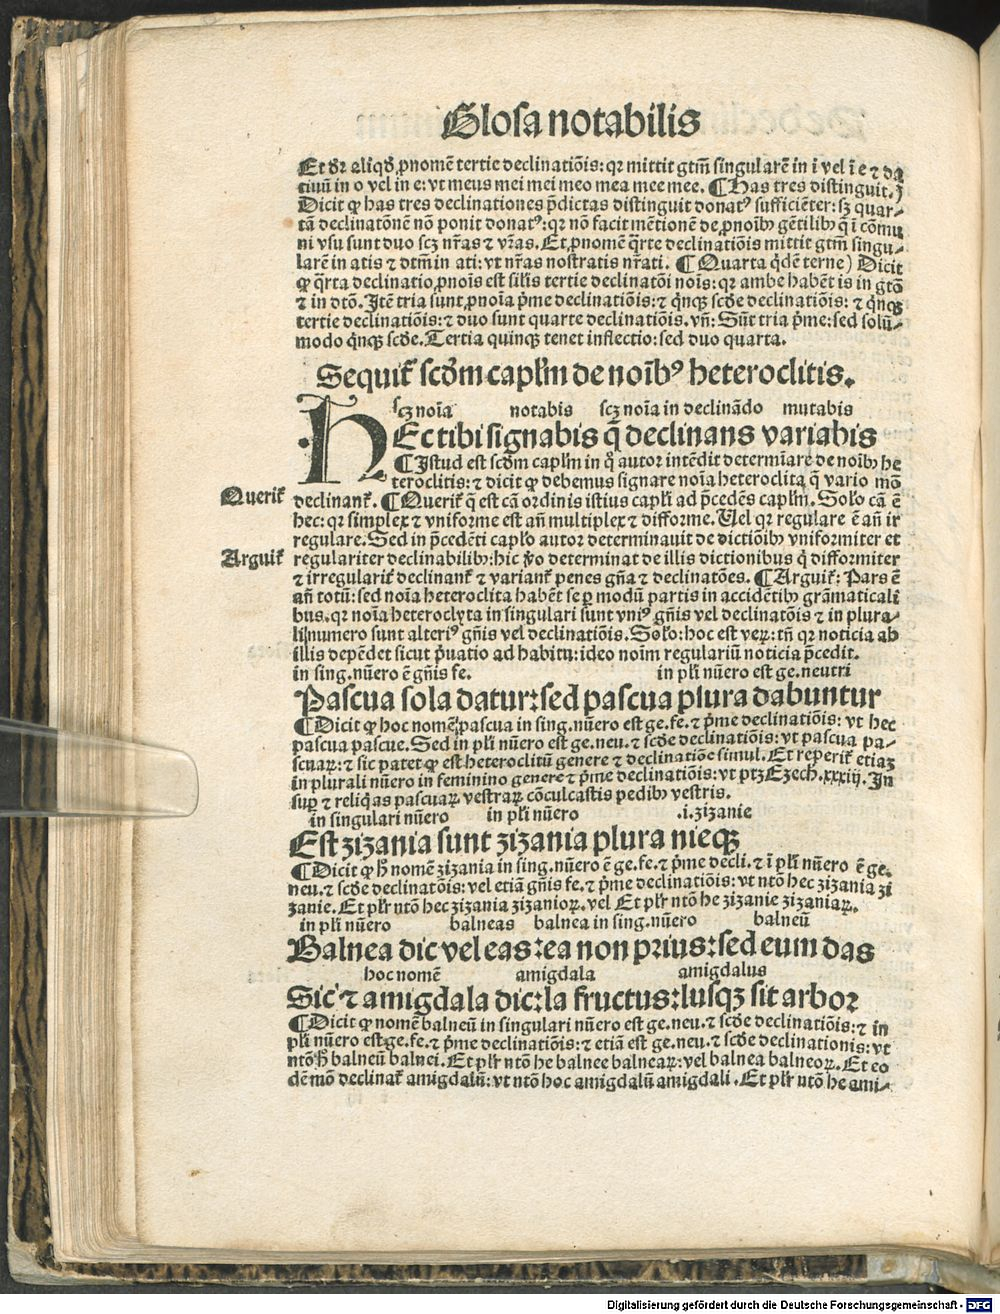 Glosa notabilis
Et dr̄ aliqđ ꝓnomē tertie declinatiōis: qꝛ mittit gtm̄ singularē in ī vel ī e ⁊ da
tiuū in o vel in e: vt meus mei mei meo mea mee mee. ¶ Has tres distinguit.)
Dicit ꝙ has tres declinationes p̄dictas distinguit donatꝰ sufficiēter: sꝫ quar⸗
tā declinatōnē nō ponit donatꝰ: qꝛ nō facit mētionē de ꝓnoīb9 gētilib9 q̄ ī cōmu
ni vsu sunt duo scꝫ nr̄as ⁊ vr̄as. Et ꝓnomē q̄rte declinatiōis mittit gtm̄ singu⸗
larē in atis ⁊ dtm̄ in ati: vt nr̄as nostratis nr̄ati. ¶ Quarta q̇dē terne) Dicit
ꝙ q̄rta declinatio ꝓnoīs est silīs tertie declinatōi noīs: qꝛ ambe habēt is in gtō
⁊ in dtō. Itē tria sunt ꝓnoīa p̄me declinatiōis: ⁊ q̇nqꝫ scđe declinatiōis: ⁊ q̇nqꝫ
tertie declinatiōis: ⁊ duo sunt quarte declinatiōis. vn̄: Sūt tria p̄me: sed solū⸗
modo q̇nqꝫ scđe. Tertia quinqꝫ tenet inflectio: sed duo quarta.
Sequit̄ scđm capl̄m de noīb9 heteroclitis.
scꝫ noīa notabis scꝫ noīa in declinādo mutabis
HEc tibi signabis q̄ declinans variabis
¶ Istud est scđm capl̄m in q̊ autor intēdit determīare de noīb9 he
teroclitis: ⁊ dicit ꝙ debemus signare noīa heteroclita q̄ vario mō
Querit̄
declinant̄. ¶ Querit̄ q̄ est cā ordinis istius capl̄i ad p̄cedēs capl̄m. Solō cā ē
hec: qꝛ simplex ⁊ vniforme est an̄ multiplex ⁊ difforme. Uel qꝛ regulare ē an̄ ir
regulare. Sed in p̄cedēti capl̄o autor determinauit de dictiōib9 vniformiter et
Arguit̄
regulariter declinabilib9: hic v̊o determinat de illis dictionibus q̄ difformiter
⁊ irregularit̄ declinant̄ ⁊ variant̄ penes gn̄a ⁊ declinatōes. ¶ Arguit̄: Pars ē
an̄ totū: sed noīa heteroclita habēt se ꝑ modū partis in accidētib9 grāmaticali
bus. qꝛ noīa heteroclyta in singulari sunt vniꝰ gn̄is vel declinatōis ⁊ in plura⸗
li numero sunt alteriꝰ gn̄is vel declinatiōis. Solō: hoc est verꝫ: tn̄ qꝛ noticia ab
illis depēdet sicut p̄uatio ad habitū: ideo noīm regulariū noticia p̄cedit.
in sing. nūero ē gn̄is fe. in pl̄i nūero est ge. neutri
Pascua sola datur: sed pascua plura dabuntur
¶ Dicit ꝙ hoc nomē pascua in sing. nūero est ge. fe. ⁊ p̄me declinatiōis: vt hec
pascua pascue. Sed in pl̄i nūero est ge. neu. ⁊ scđe declinatiōis: vt pascua pa⸗
scuaꝝ: ⁊ sic patet ꝙ est heteroclitū genere ⁊ declinatiōe simul. Et reperit̄ etiaꝫ
in plurali nūero in feminino genere ⁊ p̄me declinatiōis: vt ptꝫ Ezech. xxxiij. In
suꝑ ⁊ reliq̇as pascuaꝝ vestraꝝ cōculcastis pedib9 vestris.
in singulari nūero in pl̄i nūero .i. zizanie
Est zizania sunt zizania plura nieqꝫ
¶ Dicit ꝙ h̄ nomē zizania in sing. nūero ē ge. fe. ⁊ p̄me decli. ⁊ ī pl̄i nūero ē ge.
neu. ⁊ scđe declinatōis: vel etiā gn̄is fe. ⁊ p̄me declinatiōis: vt ntō hec zizania zi
zanie. Et pl̄r ntō hec zizania zizanioꝝ. vel Et pl̄r ntō he zizanie zizaniaꝝ.
in pl̄i nūero balneas balnea in sing. nūero balneū
Balnea dic vel eas: ea non prius: sed eum das
hoc nomē amigdala amigdalus
Sic ⁊ amigdala dic: la fructus: lusqꝫ sit arbor
¶ Dicit ꝙ nomē balneū in singulari nūero est ge. neu. ⁊ scđe declinatiōis: ⁊ in
pl̄i nūero est ge. fe. ⁊ p̄me declinatiōis: ⁊ etiā est ge. neu. ⁊ scđe declinationis: vt
ntō h̄ balneū balnei. Et pl̄r ntō he balnee balneaꝝ: vel balnea balneoꝝ. Et eo
dē mō declinat̄ amigdalū: vt ntō hoc amigdalū amigdali. Et pl̄r ntō he ami⸗
Digitalisierung gefördert durch die Deutsche Forschungsgemeinschaft - DFG